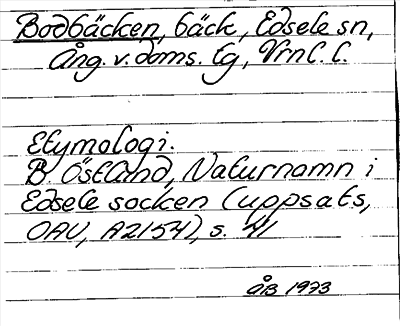 Bodbäcken, bäck, Edsele sn,
Ång. v. doms. tg, Vrnl. l.
Etymologi.
B Östlund, Naturnamn i
Edsele socken (uppsats,
OAU, A2154), s. 41
ÅB 1973